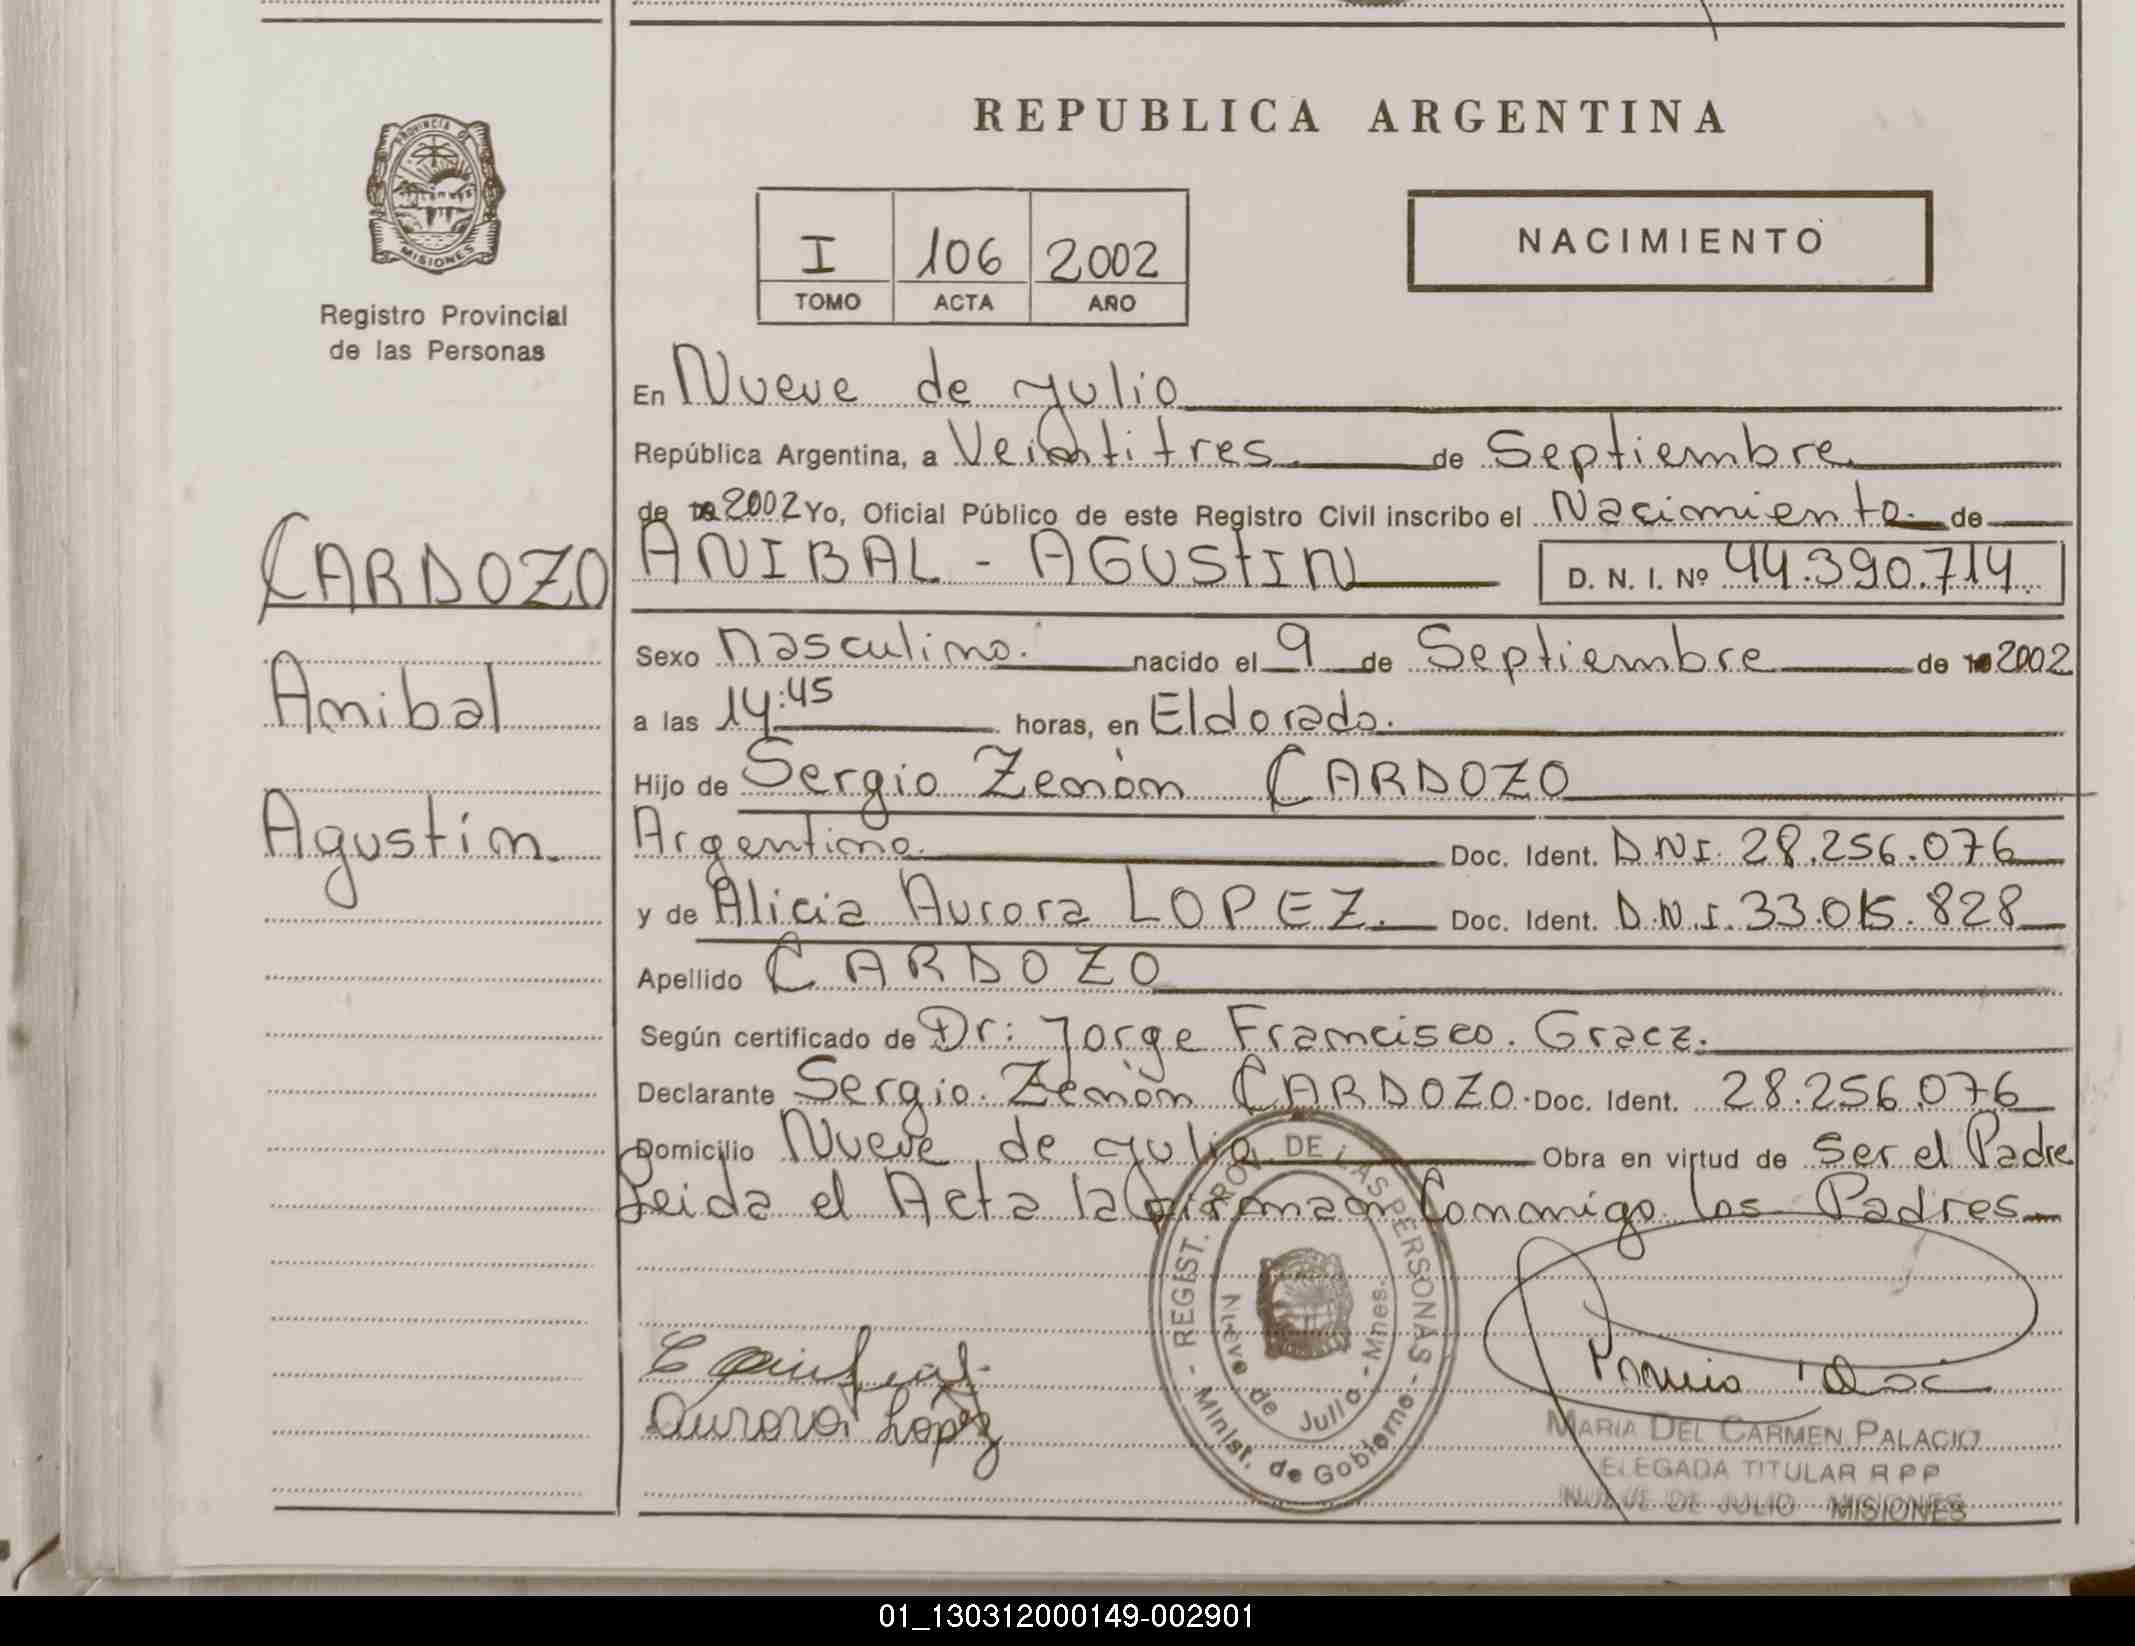 REPUBLICA ARGENTINA
PROVINCIA DE
MISIONES
Registro Provincial
de las Personas
I 106 2002
TOMO ACTA AÑO
NACIMIENTO
CARDOZO
Anibal
Agustín
En Nueve de Julio
República Argentina, a Veintitres de Septiembre
de 2002 Yo, Oficial Público de este Registro Civil inscribo el Nacimiento de
ANIBAL - AGUSTIN D. N. I. Nº 44.390.714
Sexo Masculino. nacido el 9 de Septiembre de 2002
a las 14:45 horas, en Eldorado.
Hijo de Sergio Zenón CARDOZO
Argentino Doc. Ident. D.N.I. 28.256.076
y de Alicia Aurora LOPEZ. Doc. Ident. D.N.I. 33.015.828
Apellido CARDOZO
Según certificado de Dr: Jorge Francisco. Gracz.
Declarante Sergio. Zenón CARDOZO. Doc. Ident. 28.256.076
Domicilio Nueve de Julio Obra en virtud de Ser el Padre
Leida el Acta la firman Conmigo los Padres
REGIST. PROV. DE LAS PERSONAS
Minist. de Gobierno
Nueve de Julio - Mnes.
Aurora Lopez
MARIA DEL CARMEN PALACIO
DELEGADA TITULAR R P P
NUEVE DE JULIO MISIONES
01_130312000149-002901